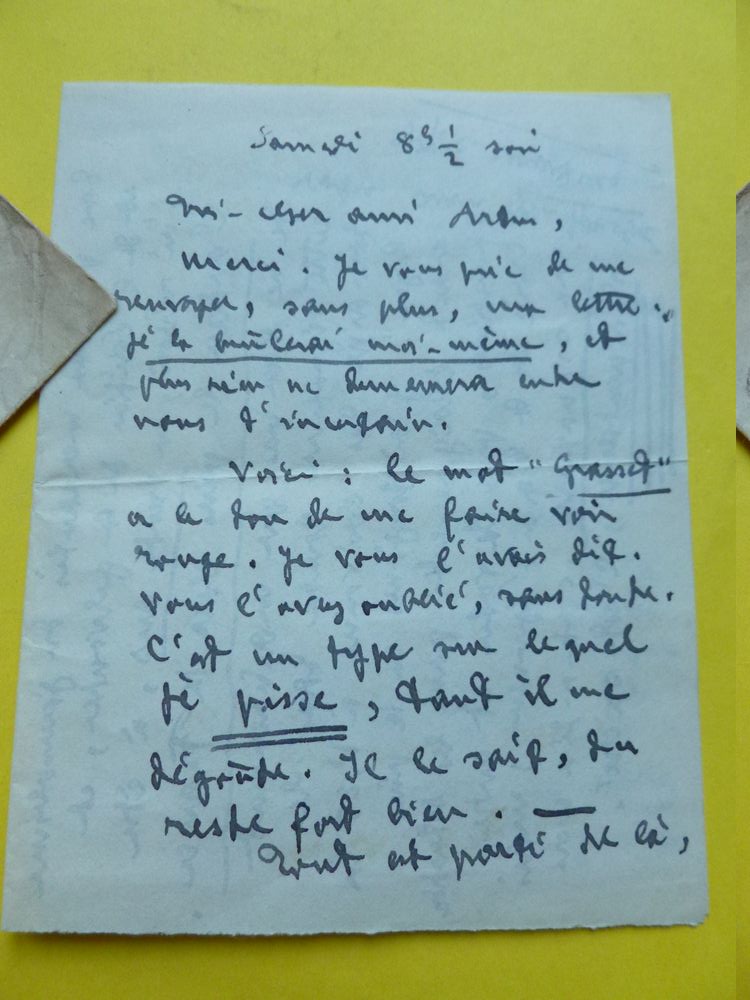 Samedi 8h ½ soir
cher ami Artus,
Merci. Je vous prie de me
renvoyer, sans plus, ma lettre.
je la brûlerai moi-même, et
plus rien ne demeurera entre
nous d'incertain.
Voici : le mot "Grasset"
a le don de me faire voir
rouge. Je vous l'avais dit.
Vous l'avez oublié, sans doute.
C'est un type sur lequel
je pisse, tant il me
dégoûte. Il le sait, du
reste fort bien. —
Tout est parti de là,